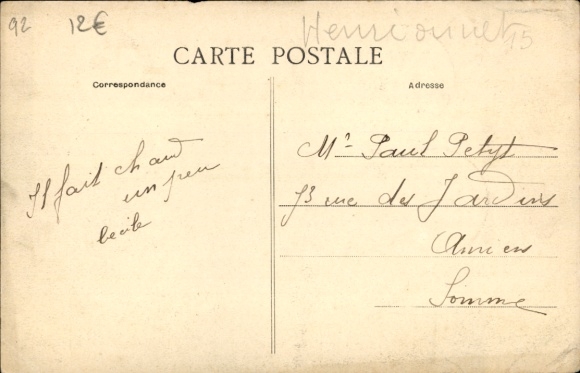 92 12€
CARTE POSTALE
Correspondance
Adresse
Il fait chaud
un peu
Cécile
Mr Paul Petyt
73 rue des Jardins
Amiens
Somme